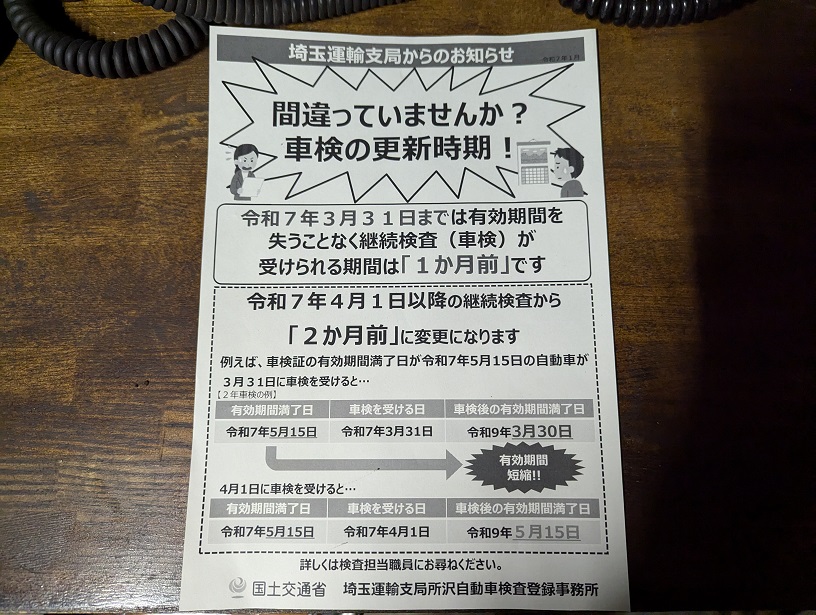 埼玉運輸支局からのお知らせ
令和7年1月
間違っていませんか?
車検の更新時期!
令和7年3月31日までは有効期間を
失うことなく継続検査(車検)が
受けられる期間は「1か月前」です
令和7年4月1日以降の継続検査から
「2か月前」に変更になります
例えば、車検証の有効期間満了日が令和7年5月15日の自動車が
3月31日に車検を受けると…
【2年車検の例】
有効期間満了日 車検を受ける日 車検後の有効期間満了日
令和7年5月15日 令和7年3月31日 令和9年3月30日
有効期間
短縮!!
4月1日に車検を受けると…
有効期間満了日 車検を受ける日 車検後の有効期間満了日
令和7年5月15日 令和7年4月1日 令和9年5月15日
詳しくは検査担当職員にお尋ねください。
国土交通省 埼玉運輸支局所沢自動車検査登録事務所